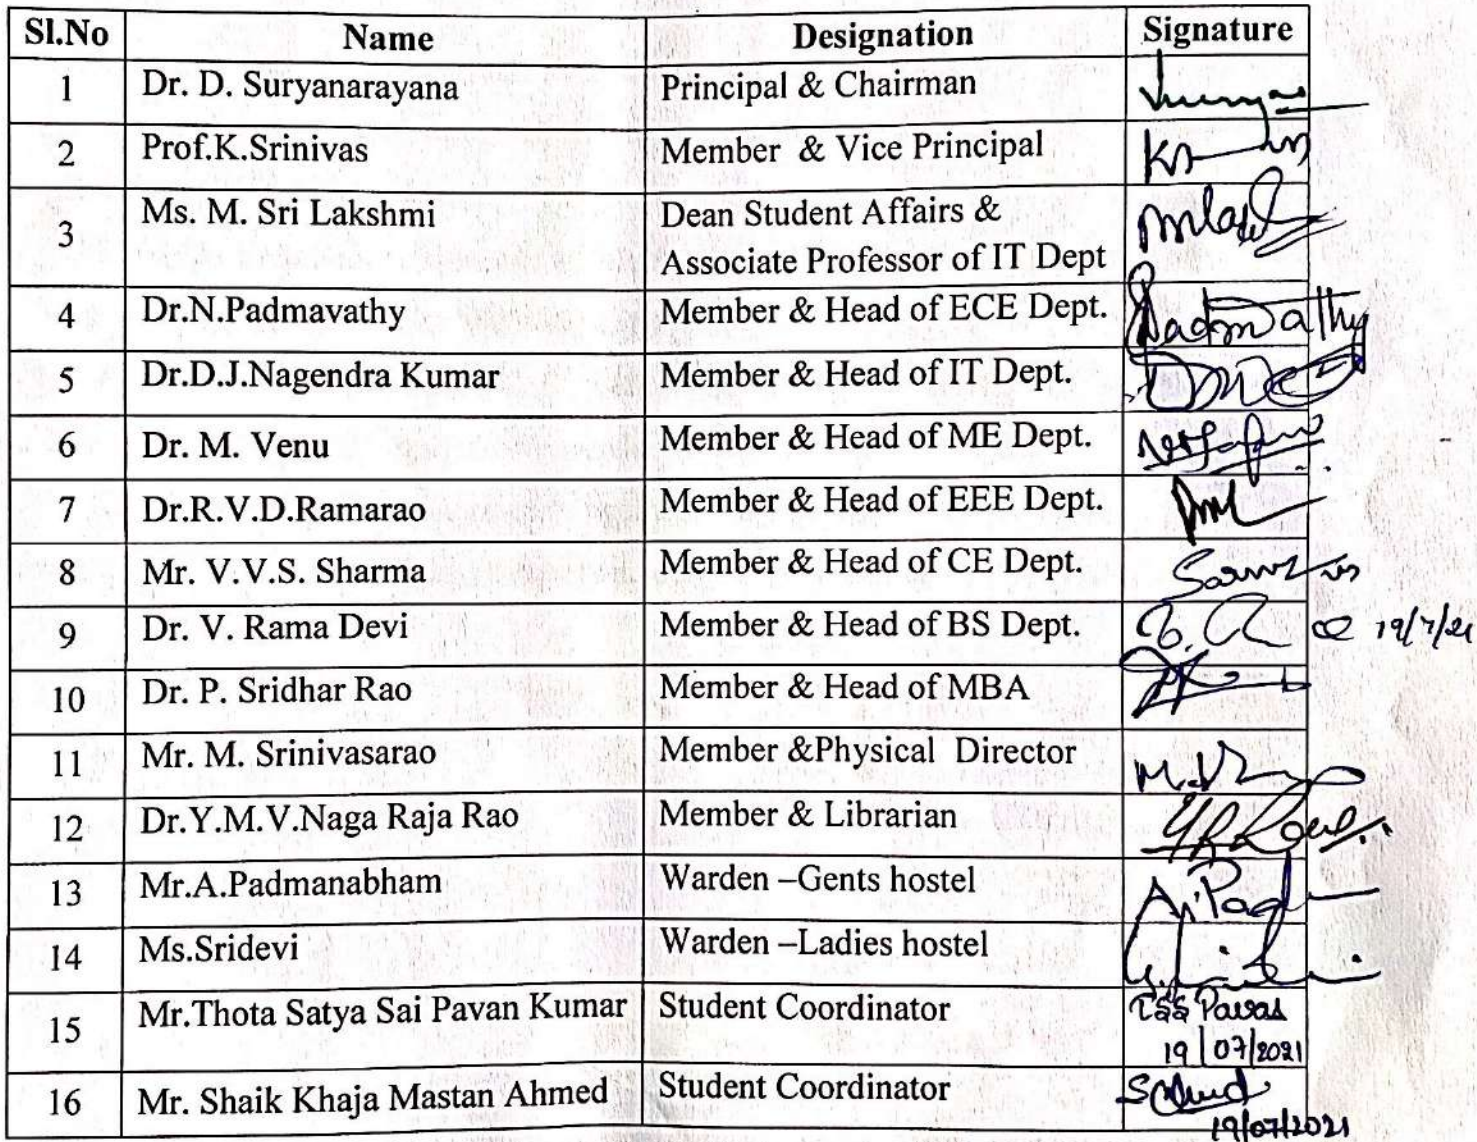 Sl.No Name Designation Signature
1 Dr. D. Suryanarayana Principal & Chairman
2 Prof.K.Srinivas Member & Vice Principal
3 Ms. M. Sri Lakshmi Dean Student Affairs &
Associate Professor of IT Dept
4 Dr.N.Padmavathy Member & Head of ECE Dept.
5 Dr.D.J.Nagendra Kumar Member & Head of IT Dept.
6 Dr. M. Venu Member & Head of ME Dept.
7 Dr.R.V.D.Ramarao Member & Head of EEE Dept.
8 Mr. V.V.S. Sharma Member & Head of CE Dept.
9 Dr. V. Rama Devi Member & Head of BS Dept. 19/7/21
10 Dr. P. Sridhar Rao Member & Head of MBA
11 Mr. M. Srinivasarao Member &Physical Director
12 Dr.Y.M.V.Naga Raja Rao Member & Librarian
13 Mr.A.Padmanabham Warden –Gents hostel
14 Ms.Sridevi Warden –Ladies hostel
15 Mr.Thota Satya Sai Pavan Kumar Student Coordinator
19/07/2021
16 Mr. Shaik Khaja Mastan Ahmed Student Coordinator
19/07/2021